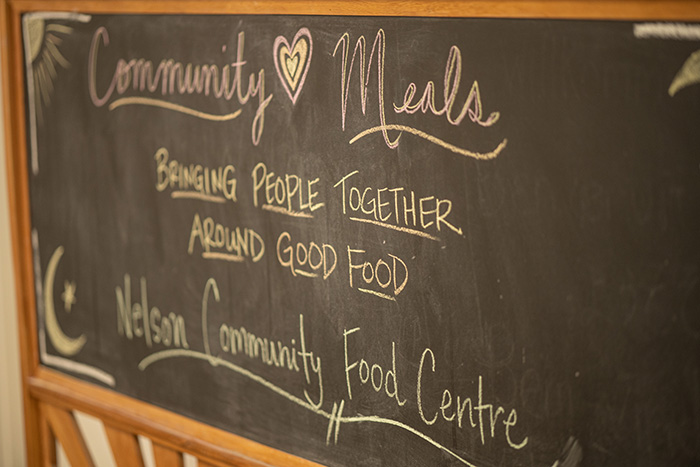 Community Meals
BRINGING PEOPLE TOGETHER
AROUND GOOD FOOD
Nelson Community Food Centre